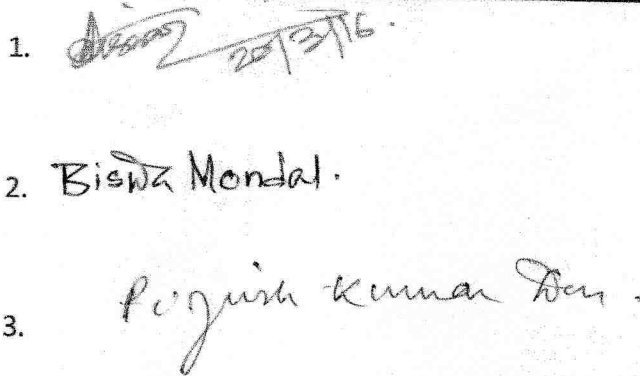 1. 20/3/16.
2. Biswa Mondal.
3. Pijush Kumar Den.